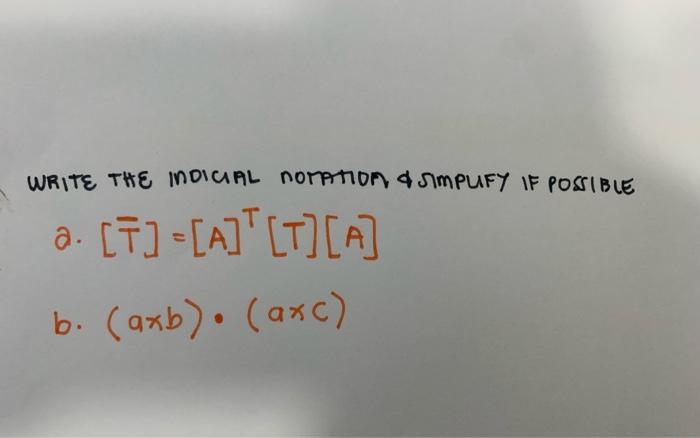 WRITE THE INDICIAL NOTATION & SIMPLIFY IF POSSIBLE
a. [T̅] = [A]ᵀ [T] [A]
b. (a×b) • (a×c)